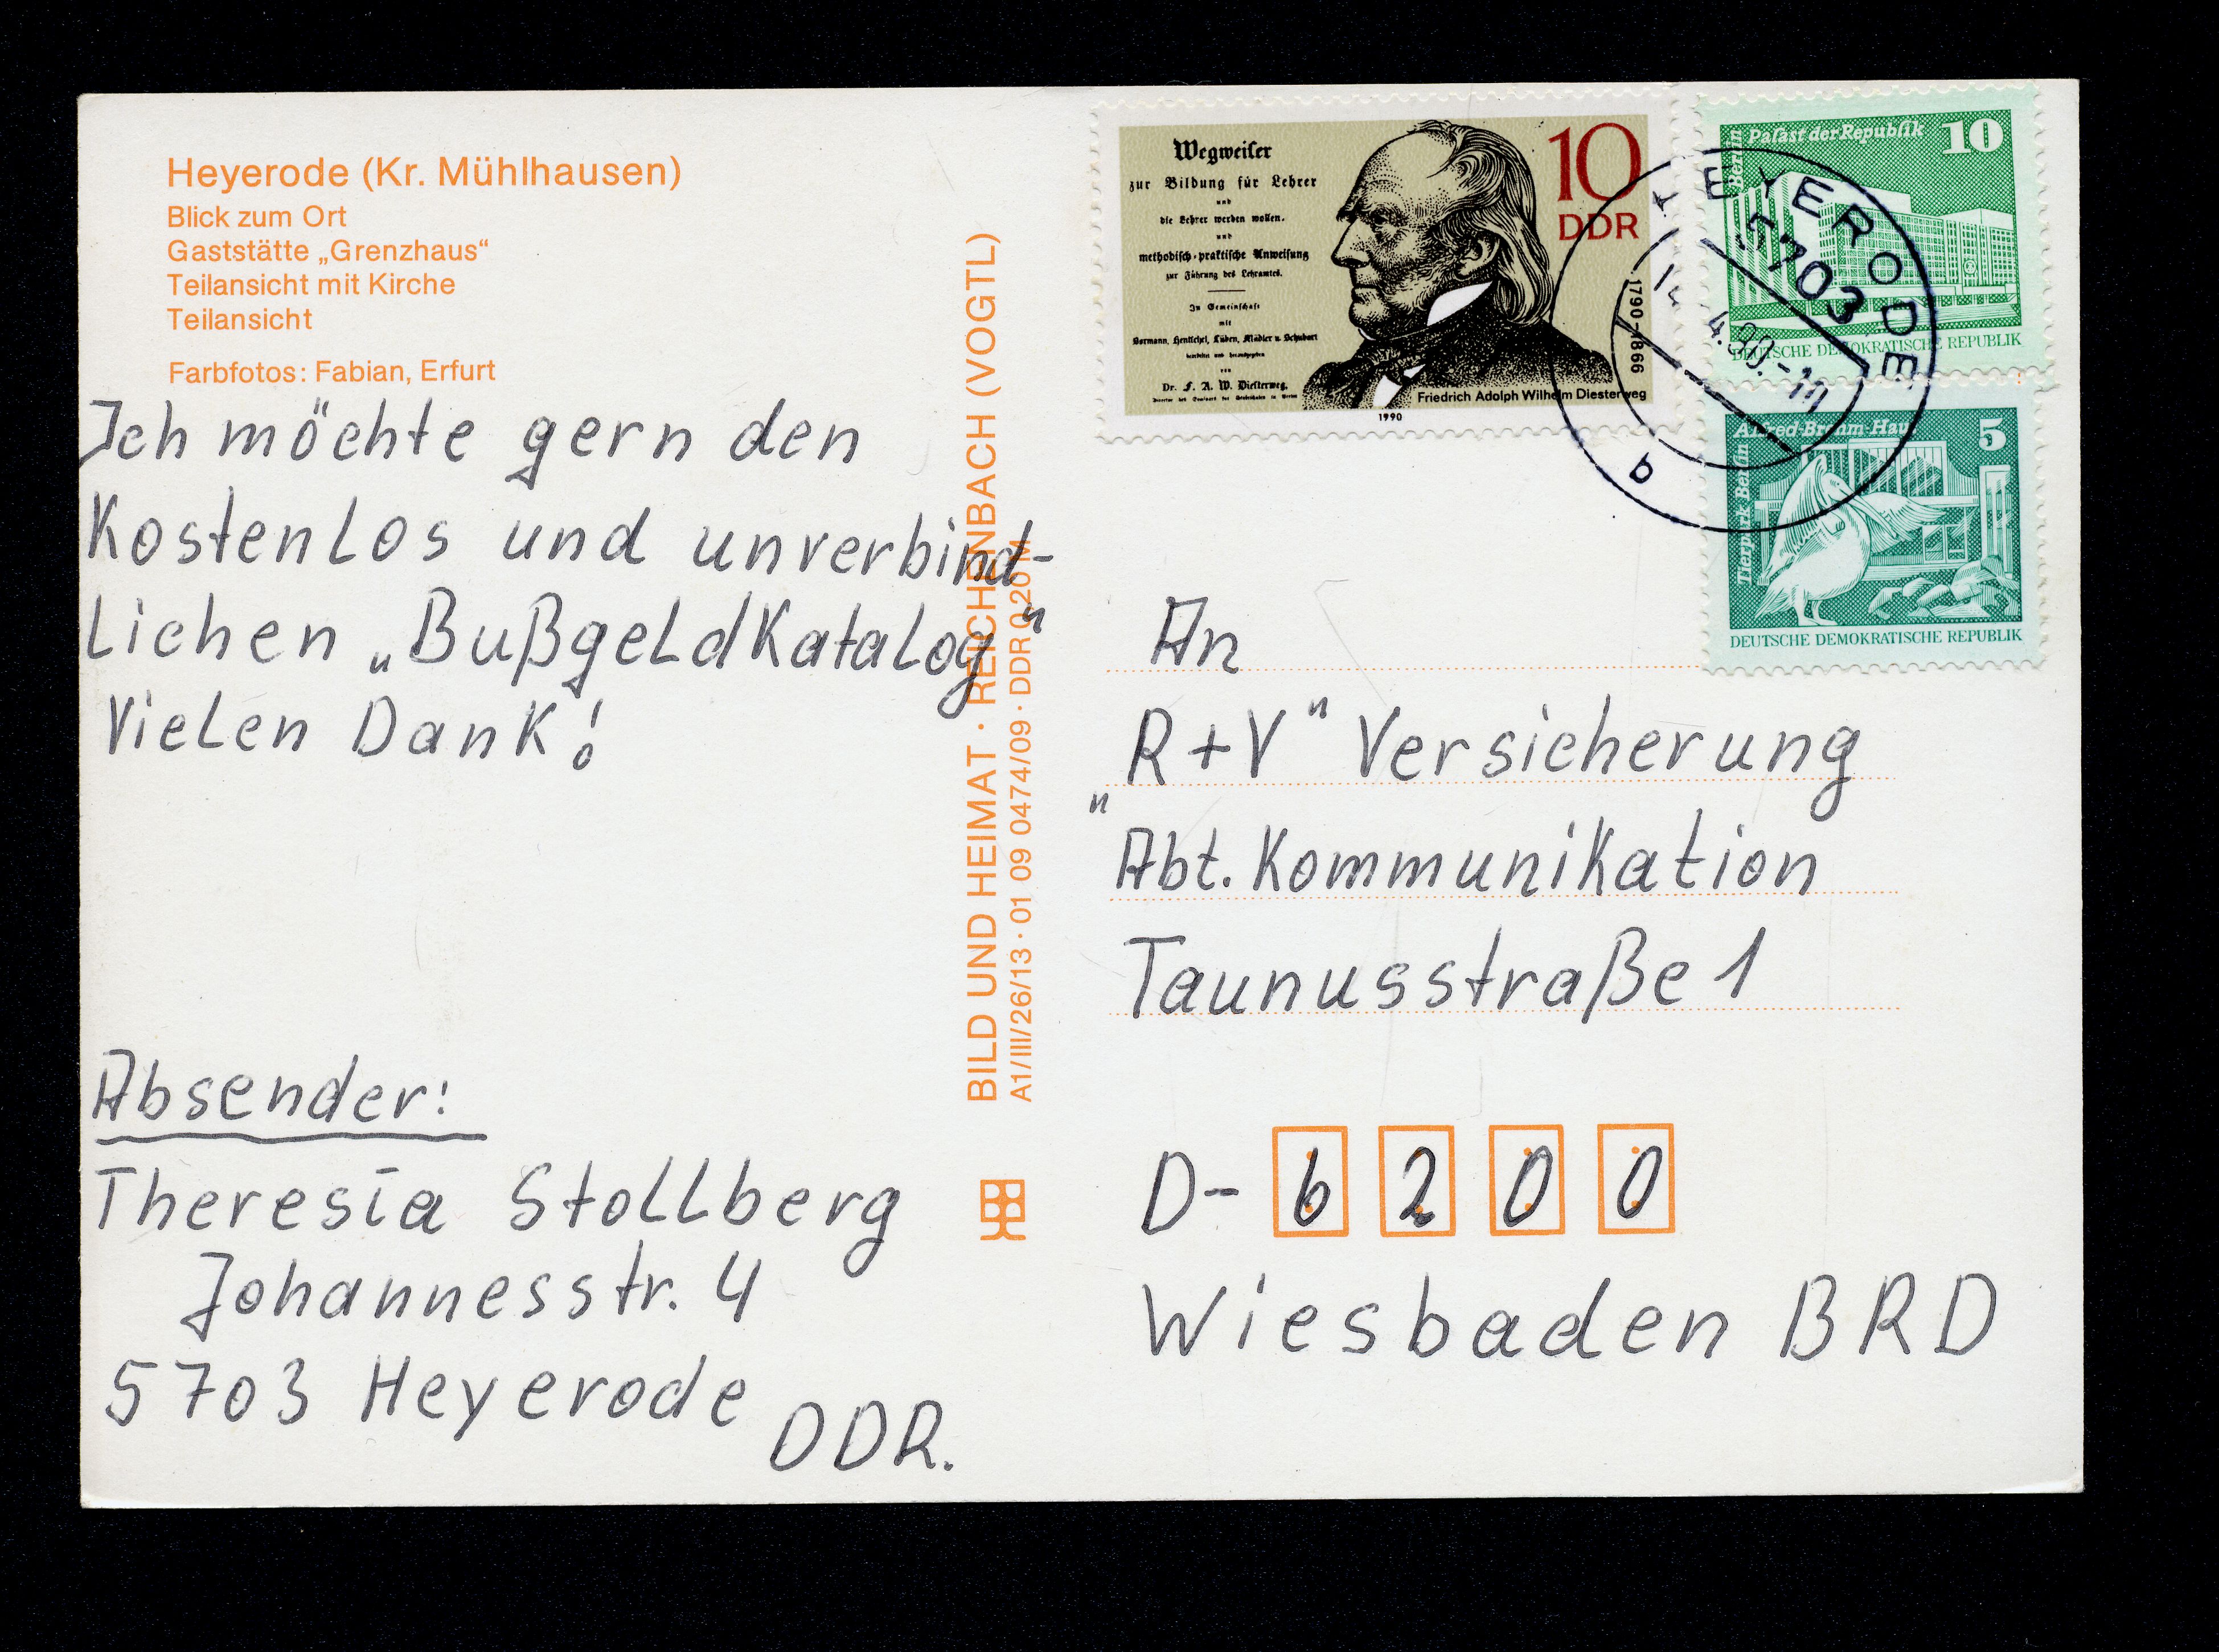 Heyerode (Kr. Mühlhausen)
Blick zum Ort
Gaststätte „Grenzhaus“
Teilansicht mit Kirche
Teilansicht
Farbfotos: Fabian, Erfurt
Ich möchte gern den
Kostenlos und unverbind-
lichen „Bußgeldkatalog“
Vielen Dank!
Absender:
Theresia Stollberg
Johannesstr. 4
5703 Heyerode DDR.
BILD UND HEIMAT · REICHENBACH (VOGTL)
A1/III/26/13 · 01 09 0474/09 · DDR 0,20 M
Wegweiser
zur Bildung für Lehrer
und
die Lehrer werden wollen.
und
methodisch-praktische Anweisung
zur Führung des Lehramtes.
In Gemeinschaft
mit
Bormann, Hentschel, Lüben, Mädler u. Schubart
bearbeitet und herausgegeben
von
Dr. F. A. W. Diesterweg.
10
DDR
1790-1866
Friedrich Adolph Wilhelm Diesterweg
1990
Berlin
Palast der Republik 10
DEUTSCHE DEMOKRATISCHE REPUBLIK
HEYERODE
5703
b
Alfred-Brehm-Haus 5
Tierpark Berlin
DEUTSCHE DEMOKRATISCHE REPUBLIK
An
R+V" Versicherung
"Abt. Kommunikation
Taunusstraße 1
D- 6200
Wiesbaden BRD